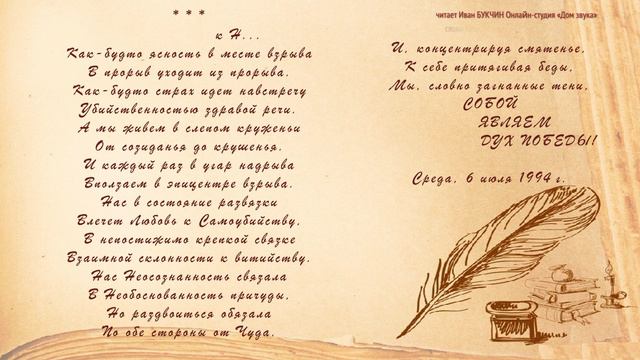 читает Иван БУКЧИН Онлайн-студия «Дом звука»
* * *
к Н...
Как-будто ясность в месте взрыва
В прорыв уходит из прорыва.
Как-будто страх идет навстречу
Убийственностью здравой речи.
А мы живем в слепом круженьи
От созиданья до крушенья.
И каждый раз в угар надрыва
Вползаем в эпицентре взрыва.
Нас в состояние развязки
Влечет Любовь к Самоубийству,
В непостижимо крепкой связке
Взаимной склонности к витийству.
Нас Неосознанность связала
В Необоснованность причуды,
Но раздвоиться обязала
По обе стороны от Чуда.
И, концентрируя смятенье,
К себе притягивая беды,
Мы, словно загнанные тени,
СОБОЙ
ЯВЛЯЕМ
ДУХ ПОБЕДЫ!!
Среда, 6 июля 1994 г.